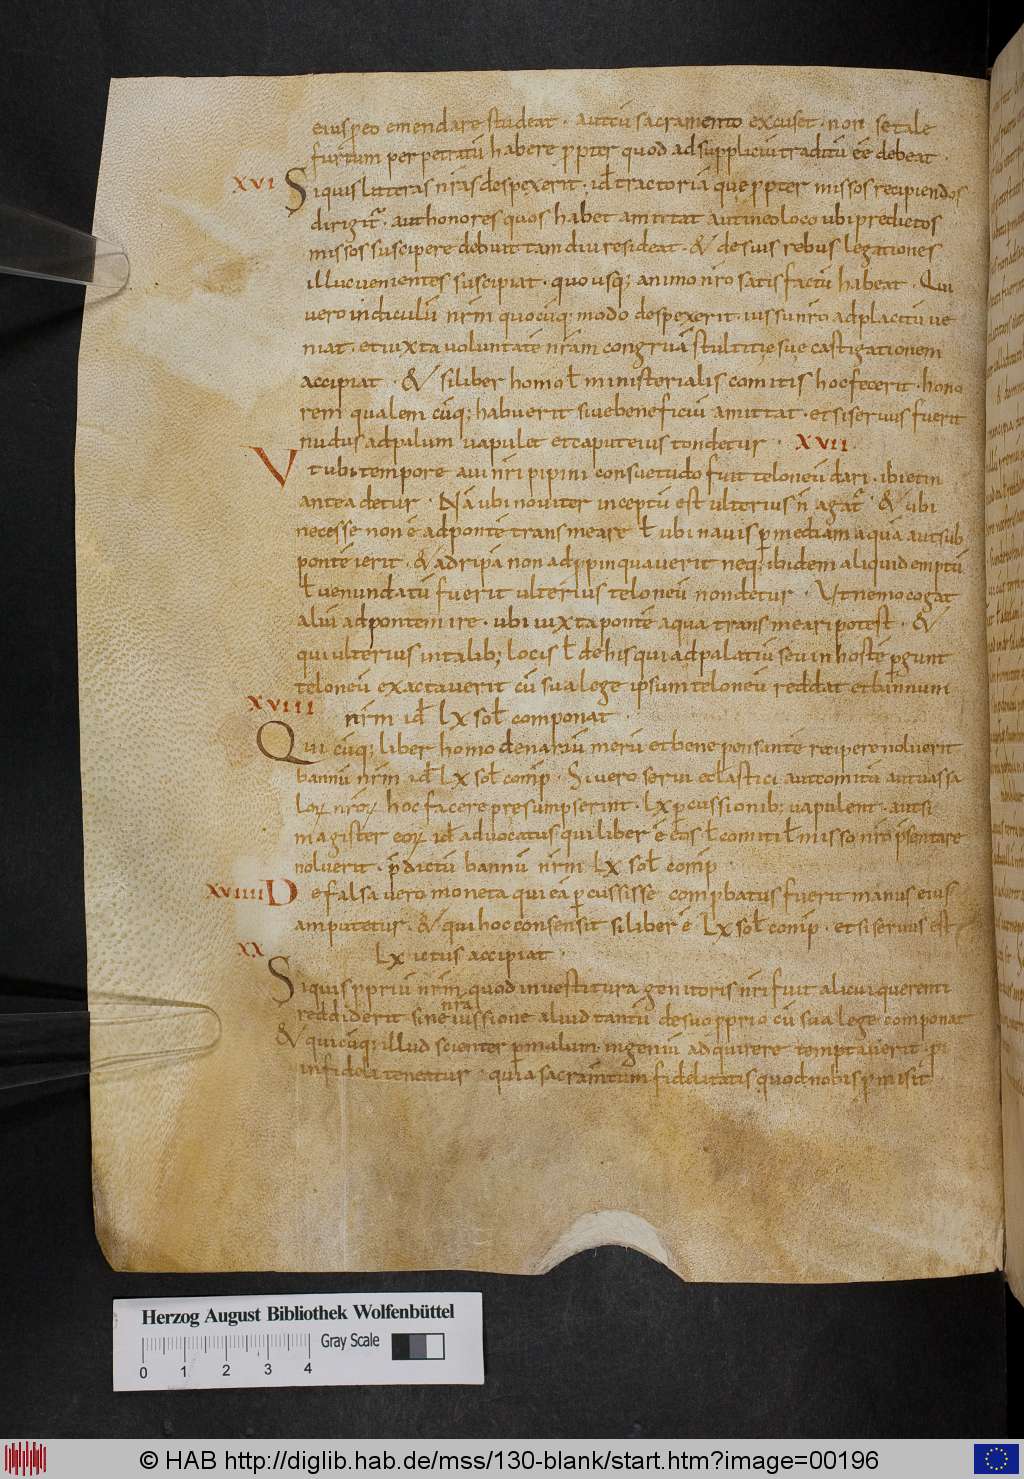 eius p eo emendare studeat · aut cū sacramento excuset · non se tale
furtum perpetratū habere ꝓpter quod ad suppliciū traditū eē debeat ·
XVI Si quis litteras nr̄as despexerit · id ē tractoriā que ꝓpter missos recipiendos
dirigit᷑ · aut honores quos habet amittat aut in eo loco ubi predictos
missos suscipere debuit tam diu resideat · & de suis rebus legationes
illuc venientes suscipiat · quo usq; animo nr̄o satisfactū habeat · Qui
vero indiculū nr̄m quocūq; modo despexerit · iussu nr̄o ad placitū ve
niat · et iuxta voluntatē nr̄am congruā stultitię sue castigationem
accipiat · & si liber homo ł ministerialis comitis hoc fecerit · hono
rem qualem cūq; habuerit sive beneficiū amittat · et si servus fuerit
nudus ad palum vapulet et caput eius tondetur · XVII
Ut ubi tempore avi nr̄i pipini consuetudo fuit teloneū dari · ibi et in
antea detur · Nā ubi noviter inceptū est ulterius n̄ agat᷑ · & ubi
necesse non ē ad pontē transmeare ł ubi navis ꝑ mediam aquā aut sub
pontē ierit · & ad ripā non adꝓpinquaverit neq; ibidem aliquid emptū
ł venundatū fuerit ulterius teloneū non detur · Ut nemo cogat
aliū ad pontem ire · ubi iuxta pontē aqua transmeari potest · &
qui ulterius in talib; locis ł de his qui ad palatiū seu in hostē ꝑgunt
teloneū exactaverit cū sua lege ipsum teloneū reddat et bannum
XVIII nr̄m id ē LX sol componat ·
Qui cūq; liber homo denariū merū et bene pensantē recipere noluerit
bannū nr̄m id ē LX sol comp̄ · Si vero servi eclastici aut comitū aut vassa
loꝝ nr̄oꝝ hoc facere presumpserint · LX ꝑcussionib; vapulent · aut si
magister eoꝝ id ē advocatus qui liber ē eos ł comiti ł misso nr̄o p̄sentare
noluerit · p̄dictū bannū nr̄m LX sol comp̄ ·
XVIIII De falsa vero moneta qui eā ꝑcussisse comꝓbatus fuerit manus eius
amputetur · & qui hoc consensit si liber ē LX sol comp̄ · et si servus est
XX LX ictus accipiat ·
Si quis ꝓpriū nr̄m quod in vestitura genitoris nr̄i fuit alicui querenti
nr̄a
reddiderit sine iussione aliud tantū de suo ꝓprio cū sua lege componat
& qui cūq; illud scienter ꝑ malum ingeniū adquirere temptaverit · p̄
infideli teneatur · quia sacram̄tum fidelitatis quod nobis ꝓmisit
Herzog August Bibliothek Wolfenbüttel
Gray Scale
0 1 2 3 4
© HAB http://diglib.hab.de/mss/130-blank/start.htm?image=00196